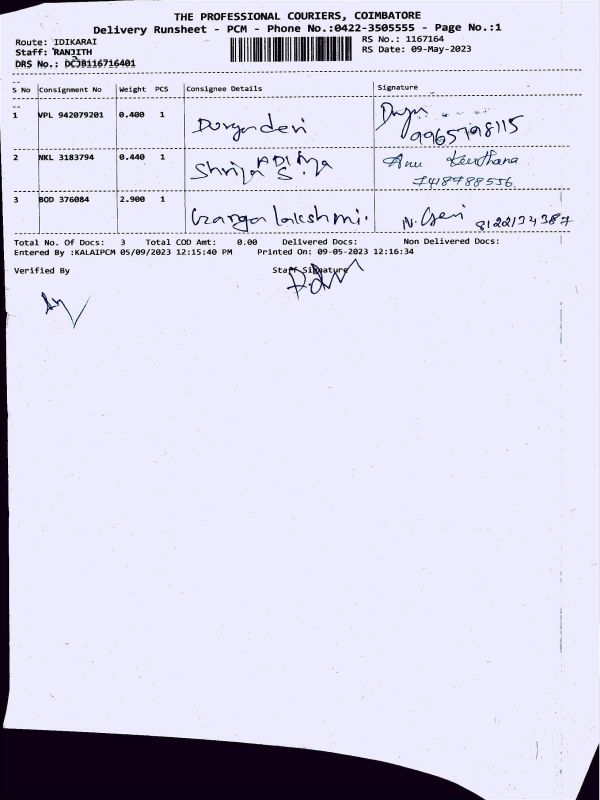 THE PROFESSIONAL COURIERS, COIMBATORE
Delivery Runsheet - PCM - Phone No.:0422-3505555 - Page No.:1
Route: IDIKARAI RS No.: 1167164
Staff: RANJITH RS Date: 09-May-2023
DRS No.: DCJB116716401
S No Consignment No Weight PCS Consignee Details Signature
1 VPL 942079201 0.400 1 Durga devi 9965798115
2 NKL 3183794 0.440 1 ADITYA Anu Keerthana
S. 7418788556
3 BOD 376084 2.900 1 lakshmi. 8122134387
Total No. Of Docs: 3 Total COD Amt: 0.00 Delivered Docs: Non Delivered Docs:
Entered By :KALAIPCM 05/09/2023 12:15:40 PM Printed On: 09-05-2023 12:16:34
Verified By Staff Signature